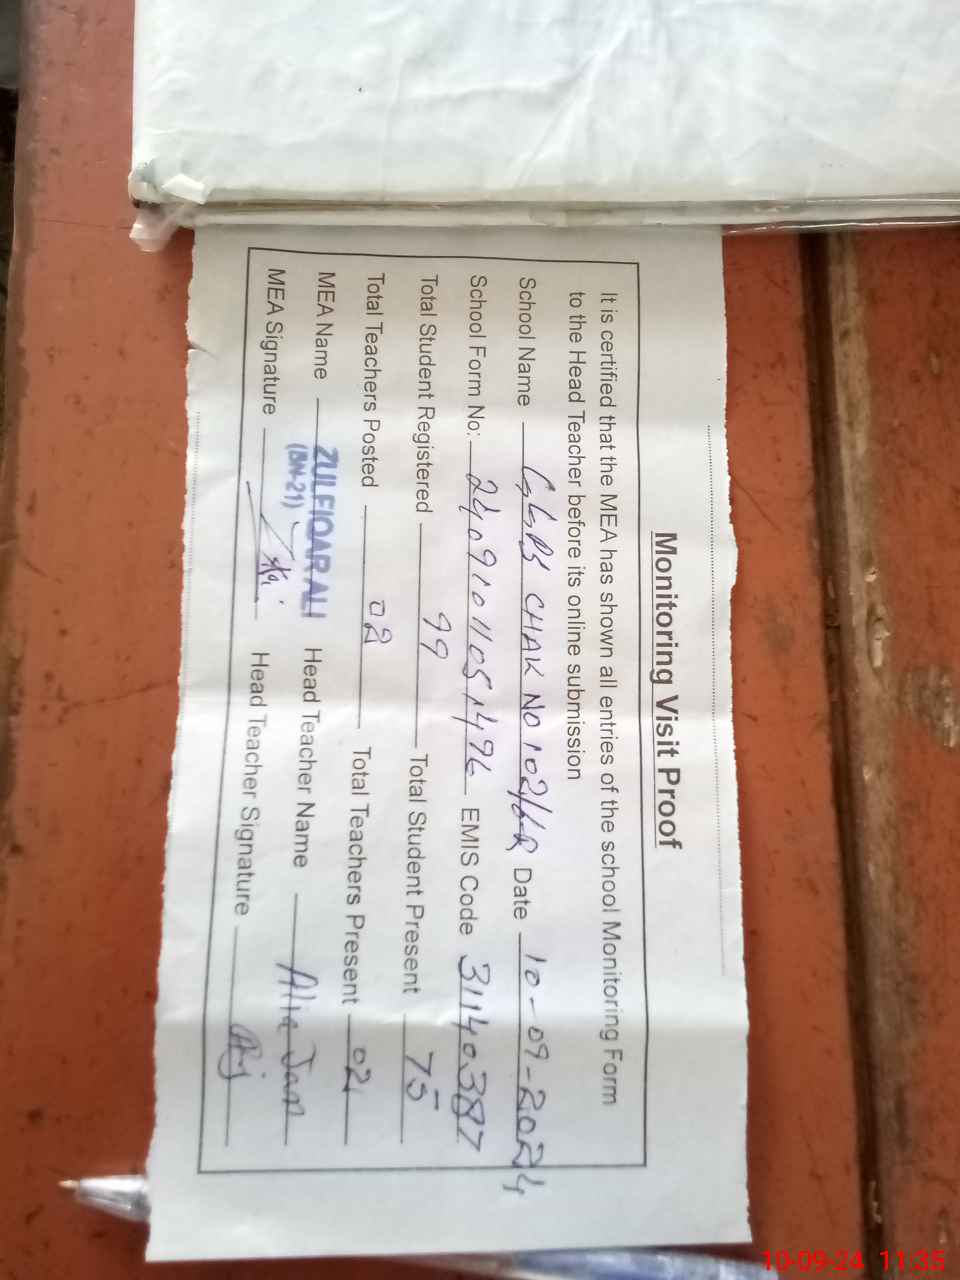 Monitoring Visit Proof
It is certified that the MEA has shown all entries of the school Monitoring Form
to the Head Teacher before its online submission
School Name GGPS CHAK NO 102/6R Date 10-09-2024
School Form No: EMIS Code 31140387
Total Student Registered 99 Total Student Present 75
Total Teachers Posted 02 Total Teachers Present 02
MEA Name ZULFIQAR ALI Head Teacher Name Alia Jan
(BN-21)
MEA Signature Head Teacher Signature
10-09-24 11:35